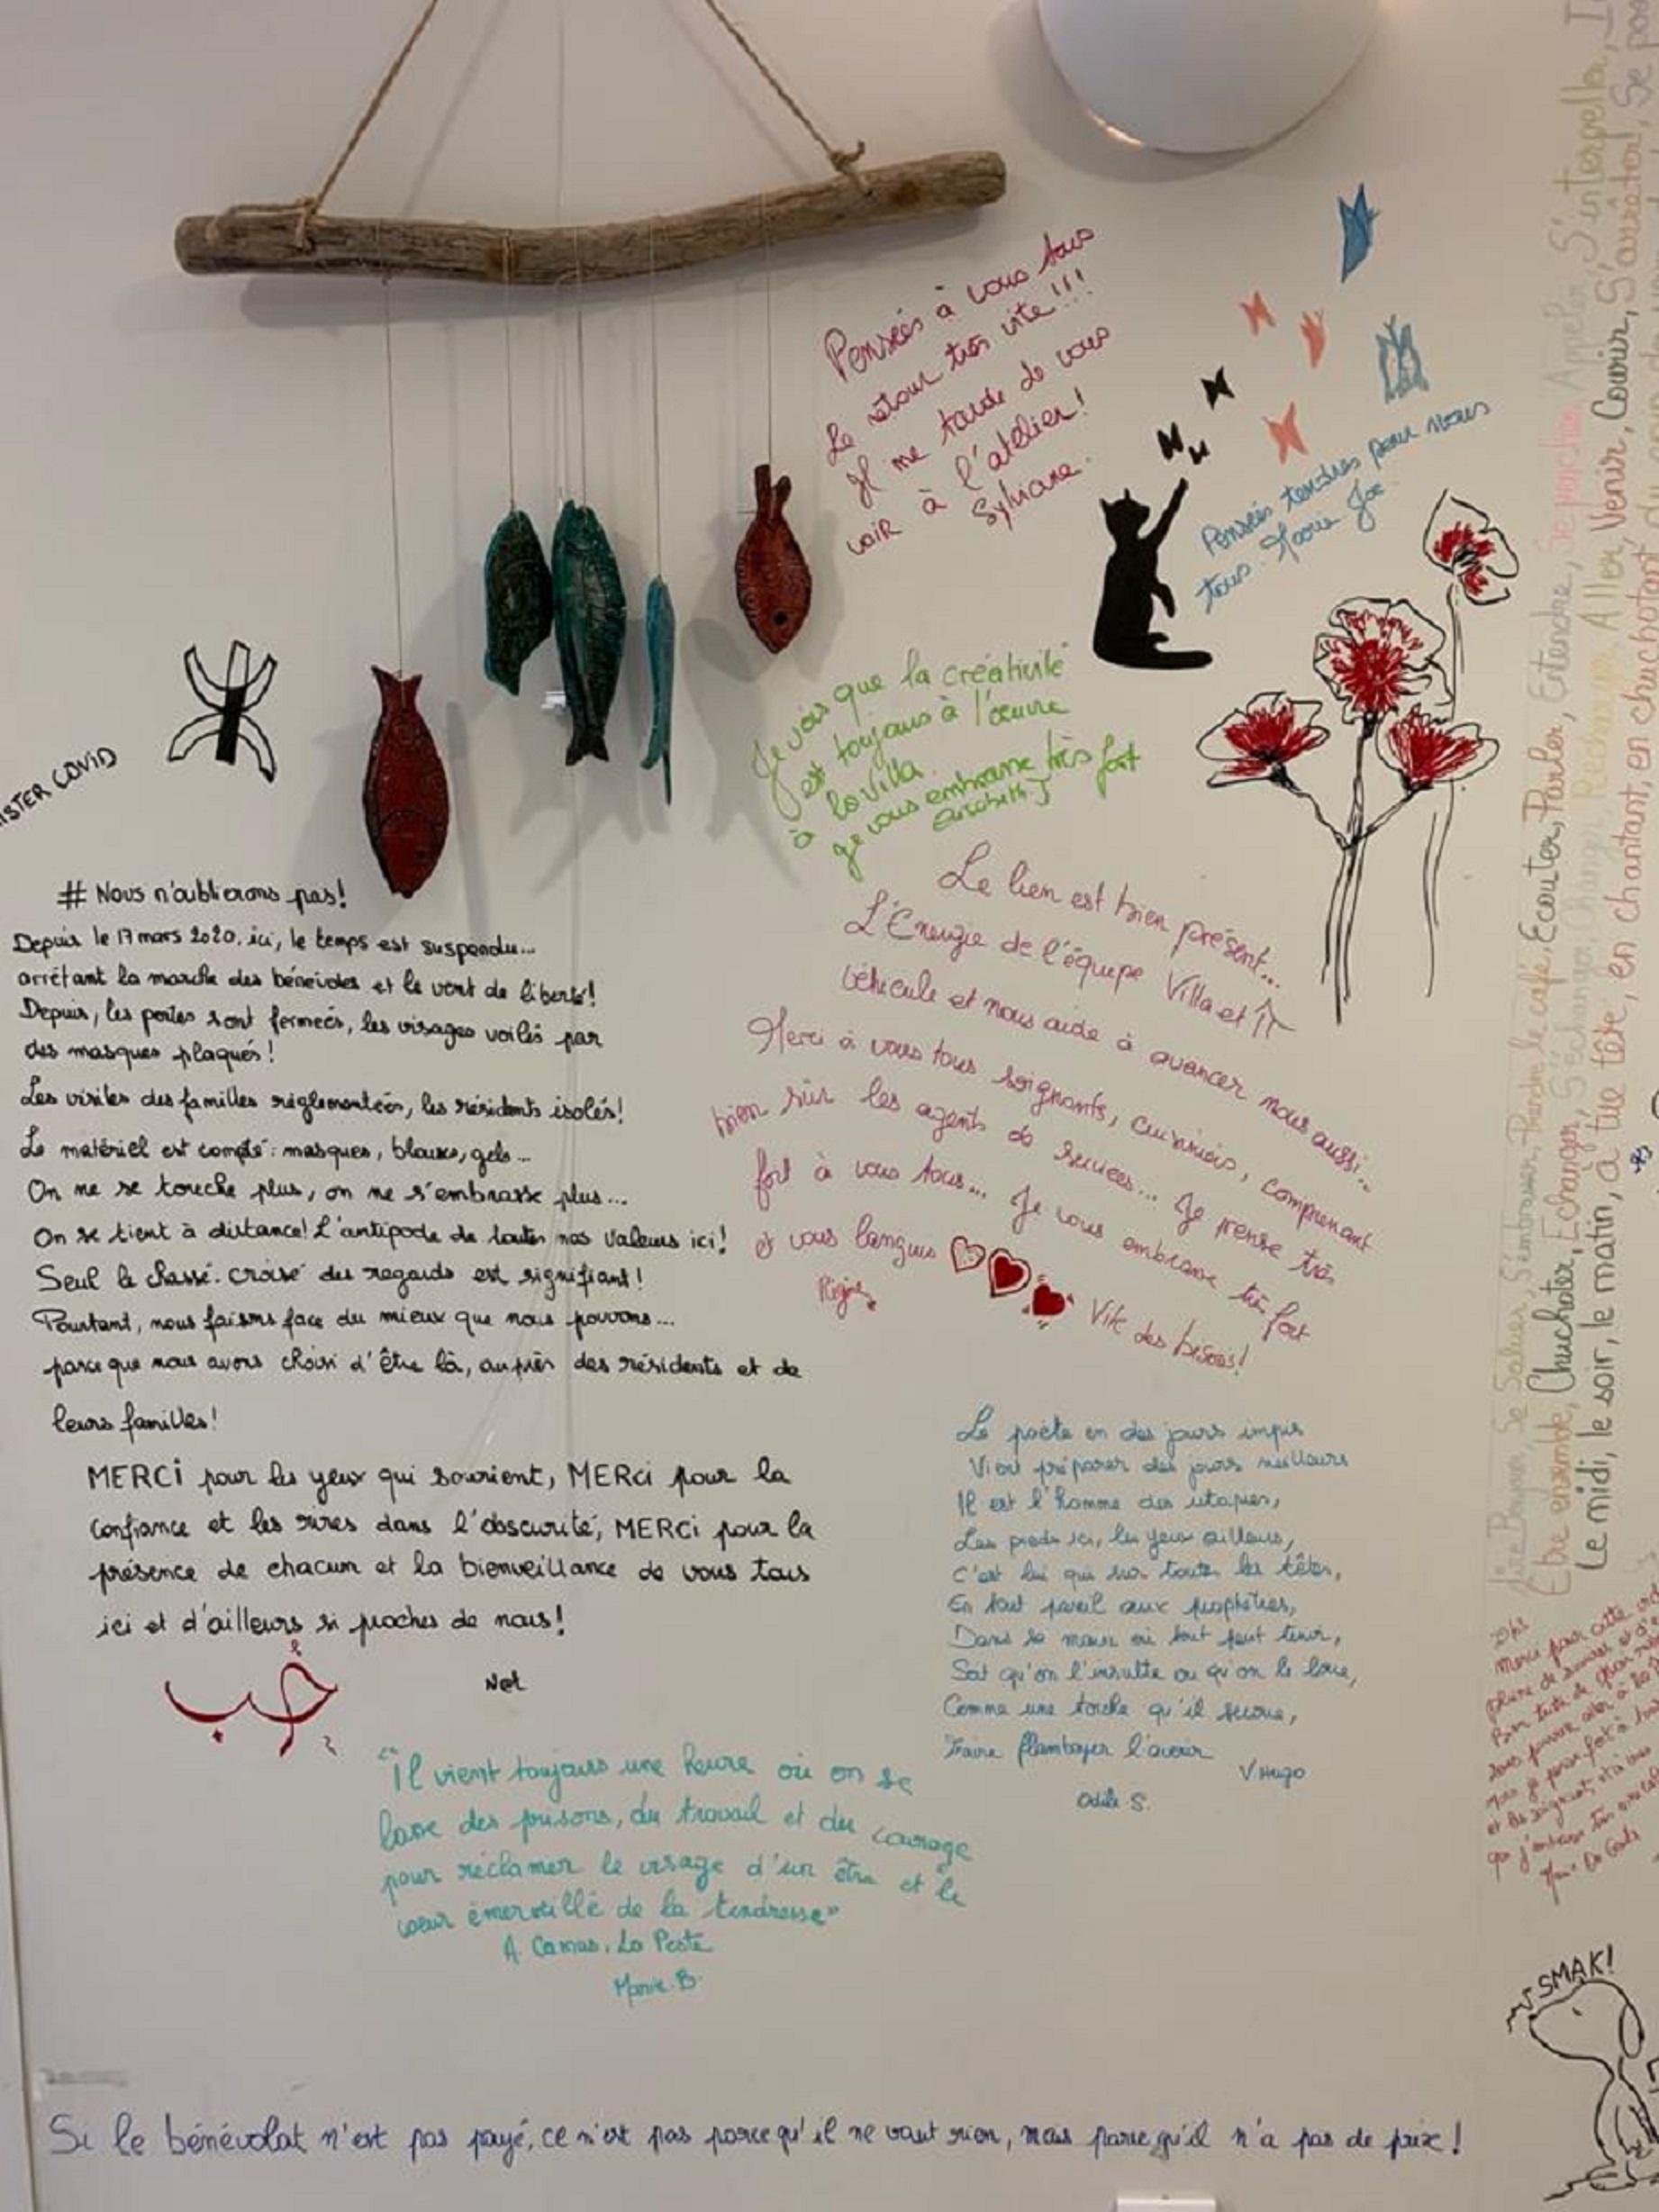 Pensées à vous tous
Le retour très vite!!!
Il me tarde de vous
voir à l'atelier!
Sylviane.
Pensées tendres pour vous
tous. Marie Joe
Je vois que la créativité
est toujours à l'œuvre
à la Villa.
Je vous embrasse très fort
Elisabeth J
ISTER COVID
# Nous n'oublierons pas!
Depuis le 17 mars 2020, ici, le temps est suspendu...
arrêtant la marche des bénévoles et le vent de liberté!
Depuis, les portes sont fermées, les visages voilés par
des masques plaqués!
Les visites des familles réglementées, les résidents isolés!
Le matériel est compté: masques, blouses, gels...
On ne se touche plus, on ne s'embrasse plus...
On se tient à distance! L'antipode de toutes nos valeurs ici!
Seul le chassé-croisé des regards est signifiant!
Pourtant, nous faisons face du mieux que nous pouvons...
parce que nous avons choisi d'être là, auprès des résidents et de
leurs familles!
MERCI pour les yeux qui sourient, MERCI pour la
confiance et les rires dans l'obscurité, MERCI pour la
présence de chacun et la bienveillance de vous tous
ici et d'ailleurs si proches de nous!
Nat
Le lien est bien présent...
L'Energie de l'équipe Villa et
véhicule et nous aide à avancer nous aussi...
Merci à vous tous soignants, cuisiniers, comprenant
bien sûr les agents de services... Je pense très
fort à vous tous... Je vous embrasse très fort
et vous languis
Vite des bisous!
Régine
Le poète en des jours impies
Vient préparer des jours meilleurs
Il est l'homme des utopies,
Les pieds ici, les yeux ailleurs,
C'est lui qui sur toutes les têtes,
En tout pareil aux prophètes,
Dans sa main où tout peut tenir,
Soit qu'on l'insulte ou qu'on le loue,
Comme une torche qu'il secoue,
Faire flamboyer l'avenir
V. Hugo
Odile S.
"Il vient toujours une heure où on se
lasse des prisons, du travail et du courage
pour réclamer le visage d'un être et le
cœur émerveillé de la tendresse"
A. Camus, La Peste
Marie. B.
Si le bénévolat n'est pas payé, ce n'est pas parce qu'il ne vaut rien, mais parce qu'il n'a pas de prix!
dire Bonjour, Se Saluer, S'embrasser, Prendre le café, Ecouter, Parler, Entendre, Se pencher, Appeler, S'interpeller,
Etre ensemble, Chuchoter, Echanger, Aller, Venir, Courir, S'arrêter, Se
Le midi, le soir, le matin, à tue tête, en chantant, en chuchotant
Merci pour cette
SMAK!